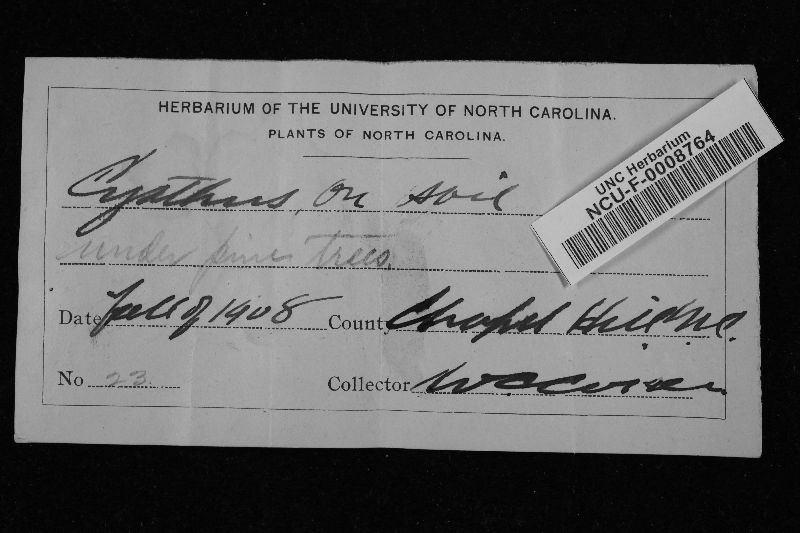 HERBARIUM OF THE UNIVERSITY OF NORTH CAROLINA.
PLANTS OF NORTH CAROLINA.
UNC Herbarium
NCU-F-0008764
Cyathus, on soil
under pine trees.
Date Fall of 1908 County Chapel Hill N.C.
No 23. Collector W C Coker